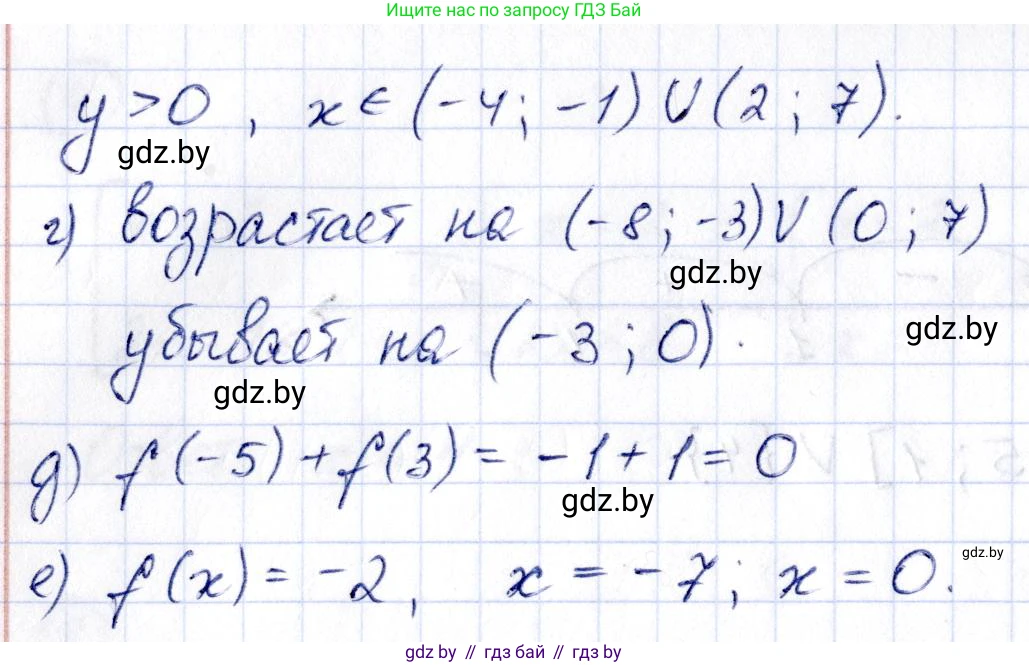 Ищите нас по запросу ГДЗ Бай
y > 0 , x ∈ (-4; -1) ∪ (2 ; 7).
gdz.by
г) возрастает на (-8; -3) ∪ (0 ; 7)
gdz.by
убывает на (-3 ; 0).
gdz.by
gdz.by
д) f(-5) + f(3) = -1 + 1 = 0
gdz.by
е) f(x) = -2, x = -7; x = 0.
gdz.by
gdz.by // гдз бай // гдз by